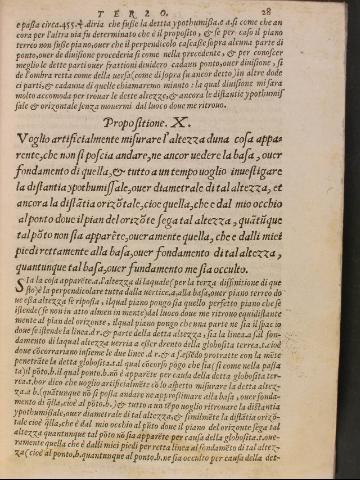 TERZO. 28
e passa circa .455. & diria che fusse la detta ypothumissa. e a si come che an
cora per l'altra uia fu determinato che il proposito, & se per caso il piano
terreo non fusse piano, ouer che il perpendicolo cascasse sopra alcuna parte di
ponto, ouer de diuisione procederia si come nella precedente, & per conoscer
meglio le dette parti ouer frattioni diuidero cadaun ponto, ouer diuisione, si
de l'ombra retta come della uersa (come di sopra fu ancor detto) in altre dode
ci parti, & cadauna di quelle chiamaremo minuto: la qual diuisione mi sara
molto accomoda per trouar le dette altezze, & ancora le distantie ypothumis
sale & orizontale senza mouermi dal luoco doue me ritrouo.
Propositione. X.
Voglio artificialmente misurare l'altezza duna cosa appa=
rente, che non si poscia andare, ne ancor uedere la basa, ouer
fondamento di quella, & tutto a un tempo uoglio inuestigare
la distantia ypothumissale, ouer diametrale di tal altezza, et
ancora la distãtia orizõtale, cioe quella, che è dal mio occhio
al ponto doue il pian del orizõte sega tal altezza, quãtũque
tal põto non sia apparẽte, oueramente quella, che è dalli miei
piedi rettamente alla basa, ouer fondamento di tal altezza,
quantunque tal basa, ouer fundamento me sia occulto.
Sia la cosa apparẽte .a. l'altezza di laquale (per la terza diffinitione di que
sto) è la perpendicolare tutta dalla uertice .a. alla basa, ouer piano terreo do
ue essa altezza se riposa, ilqual piano pongo sia quello perfetto piano che se
istende (se non in atto almen in mente) dal luoco doue me ritrouo equidistante
mente al pian del orizonte, ilqual piano pongo che una parte ne sia il spacio
doue se istende la linea .d r. & parte della detta altezza, sia la linea .a s. il fon
damento di laqual altezza uerria a esser drento della globosita terrea .t. cioè
doue cõcorrarano insieme le due linee .d r. & a s. essẽdo protratte con la mẽte
penetrãte la detta globosita .t. al qual cõcorso põgo che sia (si come nella passa
ta) il põto .b. il qual ponto .b. nõ è apparẽte per causa della detta globosita ter-
rea .t. hor dico che uoglio artificialmẽte cõ lo aspetto misurare la detta altez-
za .a b. (quãtunque nõ si possa andare ne approssimare alla basa, ouer fonda-
mento di q̃lla, cioè al põto .b.) & tutto a un tẽpo uoglio ritrouare la distantia
ypothumissale, ouer diametrale di tal altezza, & similmẽte la distãtia orizõ-
tale cioè q̃lla, che è dal mio occhio al põto doue il piano del orizonte sega tal
altezza quantunque tal põto nõ sia apparẽte per causa della globosita .t. oue-
ramente quella che è dalli miei piedi per retta linea al fondamẽto di tal altez-
za (cioè al ponto .b. quantunque al ponto .b. ne sia occulto per causa della det-